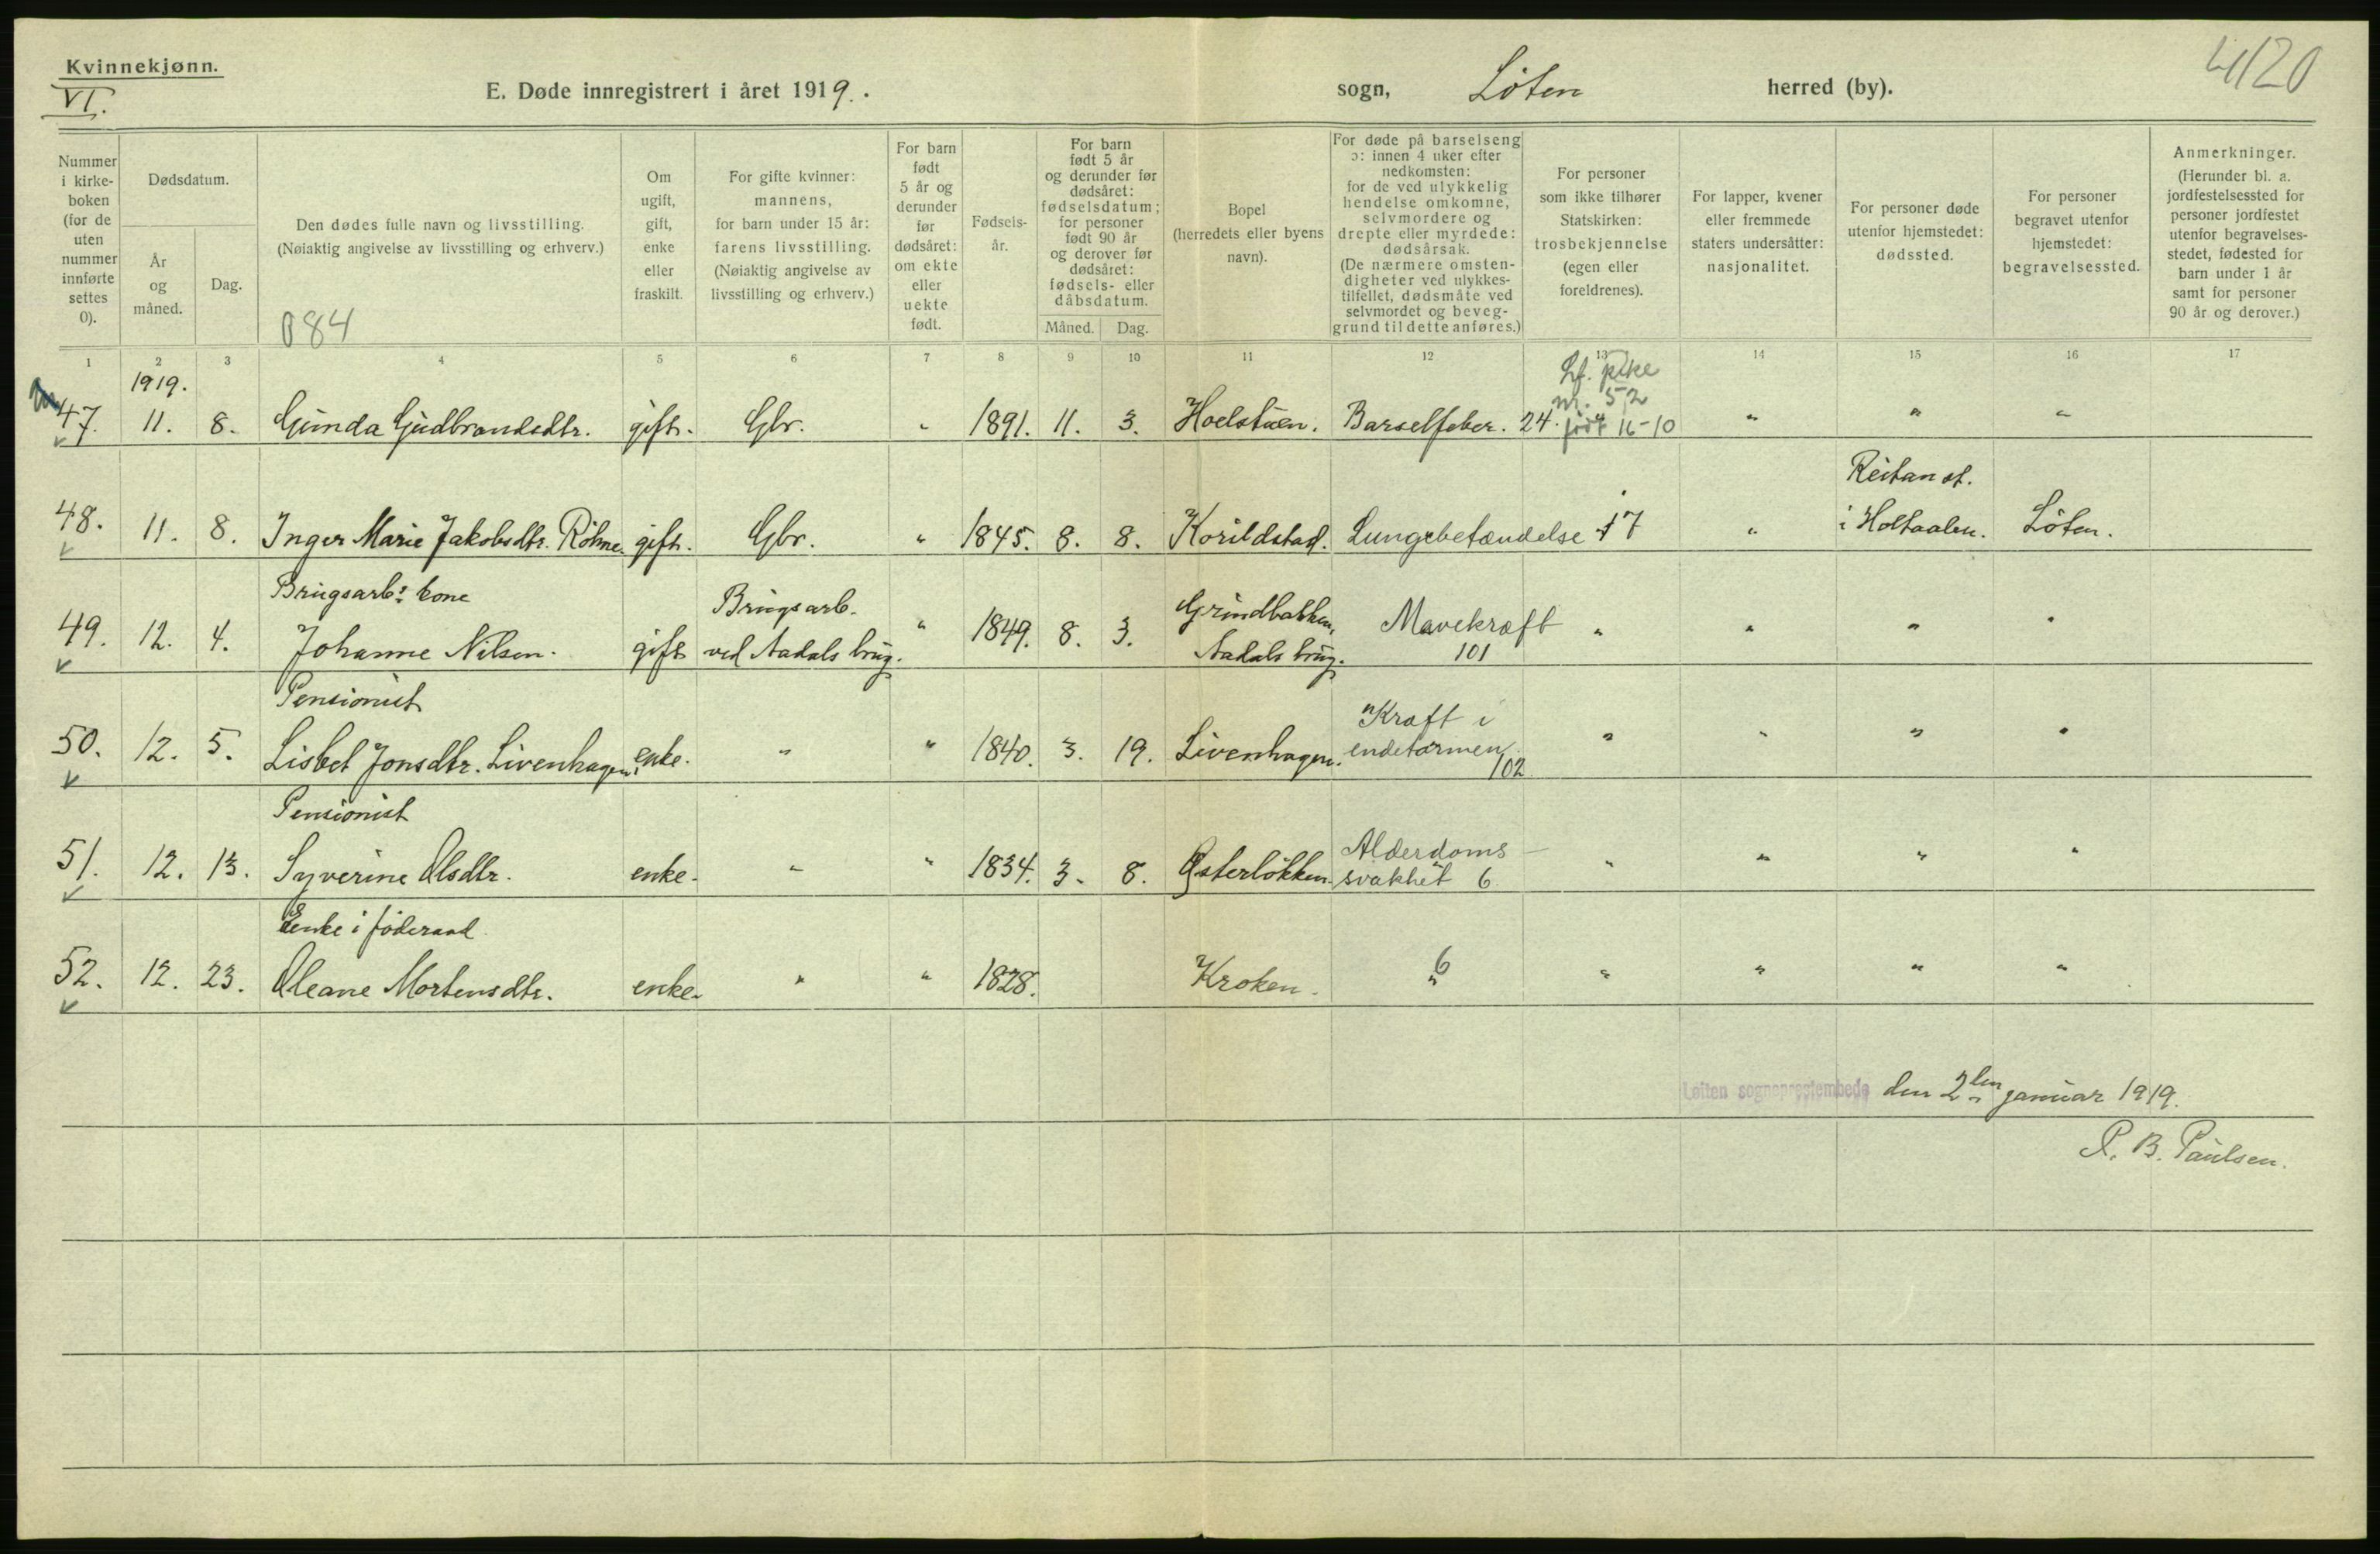 Kvinnekjønn.
VI.
E. Døde innregistrert i året 1919.
sogn, Löten herred (by).
4120
Nummer i kirke-boken (for de uten nummer innførte settes 0).
Dødsdatum.
År og måned.
Dag.
Den dødes fulle navn og livsstilling.
(Nøiaktig angivelse av livsstilling og erhverv.)
084
Om ugift, gift, enke eller fraskilt.
For gifte kvinner: mannens, for barn under 15 år: farens livsstilling. (Nøiaktig angivelse av livsstilling og erhverv.)
For barn født 5 år og derunder før dødsåret: om ekte eller uekte født.
Fødsels-år.
For barn født 5 år og derunder før dødsåret: fødselsdatum; for personer født 90 år og derover før dødsåret: fødsels- eller dåbsdatum.
Måned. Dag.
Bopel (herredets eller byens navn).
For døde på barselseng ɔ: innen 4 uker efter nedkomsten: for de ved ulykkelig hendelse omkomne, selvmordere og drepte eller myrdede: dødsårsak. (De nærmere omsten-digheter ved ulykkes-tilfellet, dødsmåte ved selvmordet og beveg-grund til dette anføres.)
For personer som ikke tilhører Statskirken: trosbekjennelse (egen eller foreldrenes).
For lapper, kvener eller fremmede staters undersåtter: nasjonalitet.
For personer døde utenfor hjemstedet: dødssted.
For personer begravet utenfor hjemstedet: begravelsessted.
Anmerkninger. (Herunder bl. a. jordfestelsessted for personer jordfestet utenfor begravelses-stedet, fødested for barn under 1 år samt for personer 90 år og derover.)
1 2 3 4 5 6 7 8 9 10 11 12 13 14 15 16 17
1919.
Lf. pike
nr. 52
47. 11. 8. Gunda Gudbrandsdtr. gift. Gbr. " 1891. 11. 3. Hoelstuen. Barselfeber. 24. født 16-10 " " "
Reitan st.
48. 11. 8. Inger Marie Jakobsdtr. Röhne. gift. Gbr. " 1845. 8. 8. Korildstad. Lungebetændelse 17 " i Holtaalen. Löten.
Brugsarb.s kone Brugsarb. Grindbakken,
49. 12. 4. Johanne Nilsen. gift ved Aadals brug. " 1849. 8. 3. Aadals brug. Mavekræft " " " "
101
Pensionist
50. 12. 5. Lisbet Jonsdtr. Livenhagen. enke. " " 1840. 3. 19. Livenhagen. Kræft i endetarmen. " " " "
102
Pensionist
51. 12. 13. Syverine Olsdtr. enke. " " 1834. 3. 8. Østerlökken. Alderdoms-svakhet 6 " " " "
Enke i föderaad
52. 12. 23. Oleane Mortensdtr. enke. " " 1828. Kroken. " 6 " " " "
Løiten sogneprestembede den 2den januar 1919.
P. B. Paulsen.